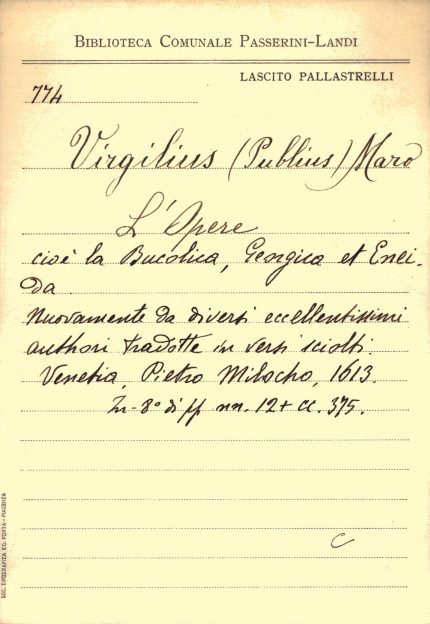 BIBLIOTECA COMUNALE PASSERINI-LANDI
LASCITO PALLASTRELLI
774
Virgilius (Publius) Maro
L'Opere
cioè la Bucolica, Georgica et Enei-
da.
Nuovamente da diversi eccellentissimi
authori tradotte in versi sciolti.
Venetia, Pietro Milocho, 1613.
In-8° di ff nn. 12 + cc. 375.
C
SOC. TIPOGRAFICA ED. PORTA - PIACENZA